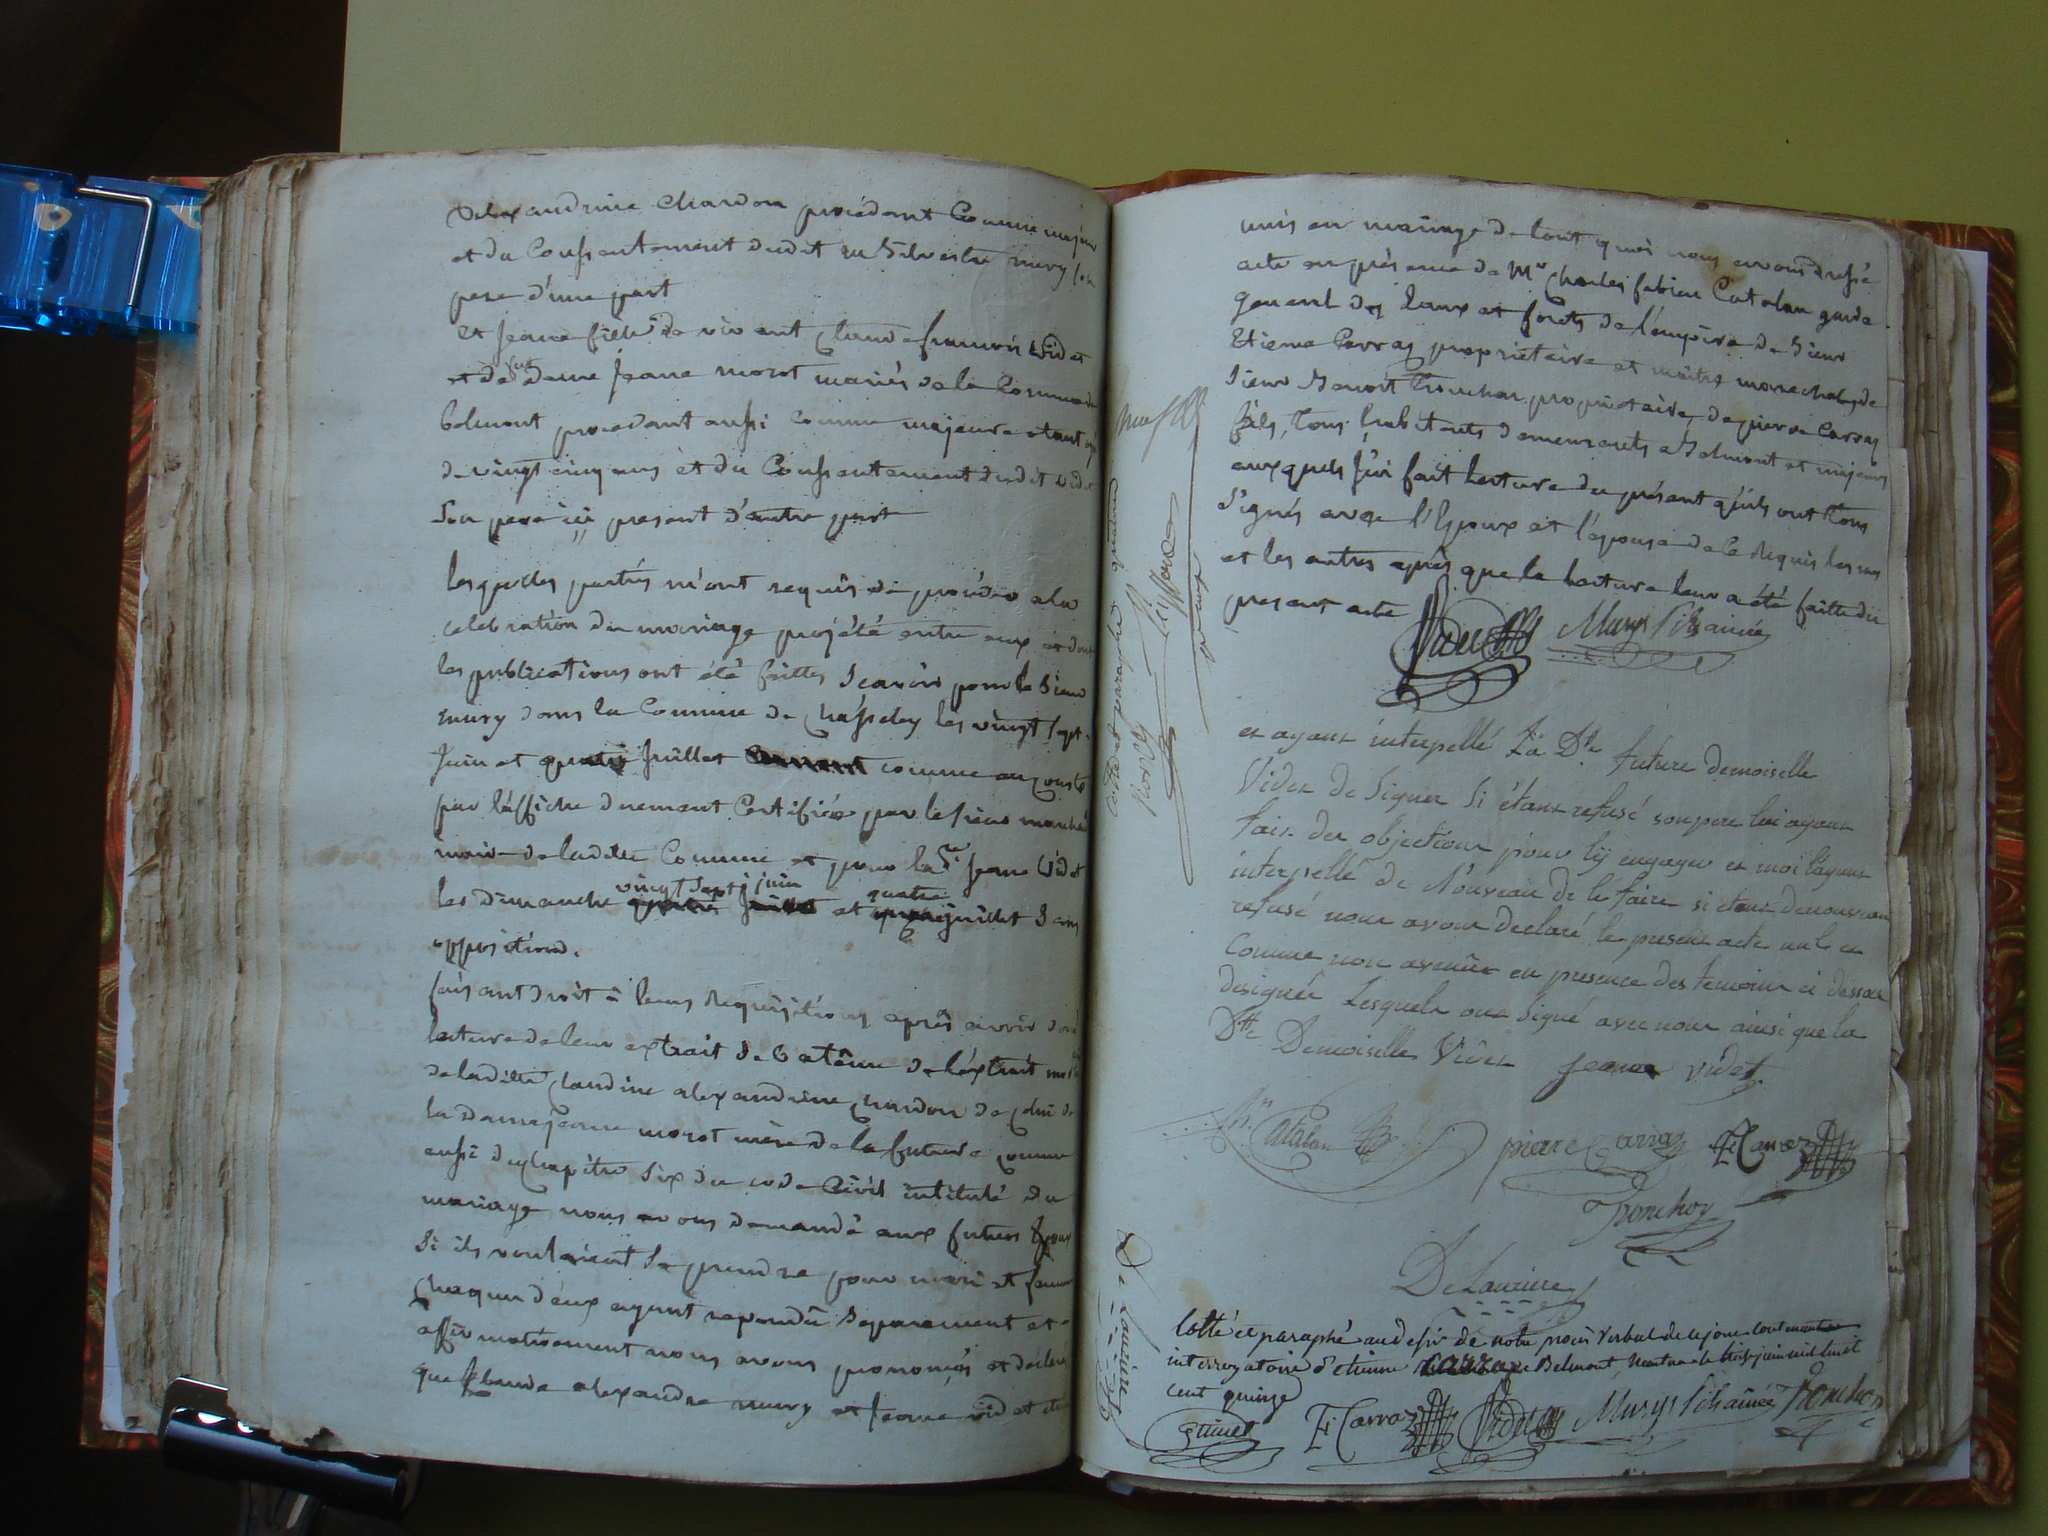 alexandrine Chardon procédant Comme majeur
et du Conssentement dudit sr Silvestre mury son
pere d'une part
et Jeane fille de vivant Claude françois Videt
et de feue dame Jeane morot mariés de la Commune de
belmont procedant aussi comme majeure etant agé
de vingt cinq ans et du Conssentement dudit Videt
Son pere ici present d'autre part
lesquelles partiés m'ont requis de procéder a la
celebration du mariage projété entre eux et dont
les publications ont été faittes Scavoir pour le Sieur
mury dans la Commune de Chasseley les vingt sept
Juin et quatre Juillet comme ai conste
par l'affiche duement Certifiée par le sieur
maire de laditte Commune et pour la De Jeane Videt
les dimanche vingt sept juin et quatre juillet Sans
opposition.
faisant droit a leurs Requisitions apres avoir doné
lecture de leur extrait de Batême de l'extrait
de laditte Claudine alexandrine Chardon de celui de
la dame Jeane morot mère de la future comme
aussi du chapitre Six du code Civil intitulé du
mariage nous avons demandé aux futurs Epoux
Si ils voulaient Se prendre pour mari et femme
chaqun d'eux ayant repondu Separement et
affirmativement nous avons prononcés et declaré
que Claude alexandre mury et Jeane videt etoient
unis en mariage de tout quoi nous avons dressé
acte en présence de Mr Charles fabien Catalan garde
general des Eaux et forets de l'empire de Sieur
Etiene Carraz propriétaire et maître marechal, de
Sieur Benoit Tronchon propriétaire, de pierre Carraz
fils, Tous habitants demeurants a Belmont et majeurs
auxquels J'ai fait lecture du présent qu'ils ont Tous
Signés avec l'Epoux et l'épouse de ce Requis les uns
et les autres après que la lecture leur a été faitte du
present acte
Videt Mury fils ainée
et ayant interpellé La Dte future demoiselle
Videt de Signer Si étant refusé son pere lui ayant
fait des objections pour lÿ engager et moi l'ayant
interpellé de Nouveau de le faire si étant de nouveau
refusé nous avons declaré le present acte nul et
Comme non avenüe en presence des temoins ci dessus
designés Lesquels ont Signé avec nous ainsi que la
Dtte Demoiselle Videt Jeane Videt
Chr Catalan pierre Carraz E Carraz
Tronchon
DeLauriere
Cotté et paraphé au desir de notre procès verbal de ce jour contenant
interrogatoire d'etienne Carraz de Belmont, juin mil huit
cent quinze
E Carraz Videt Mury fils ainée Tronchon
cotté et paraphé
De Lauriere